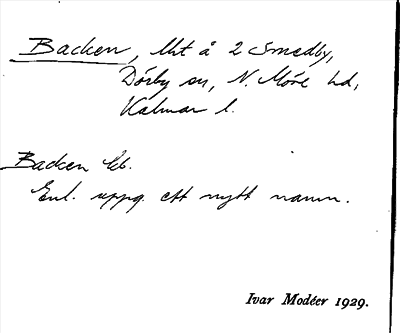 Backen, lht å 2 Smedby,
Dörby sn, N. Möre hd,
Kalmar l.
Backen
Enl. uppg. ett nytt namn.
Ivar Modéer 1929.